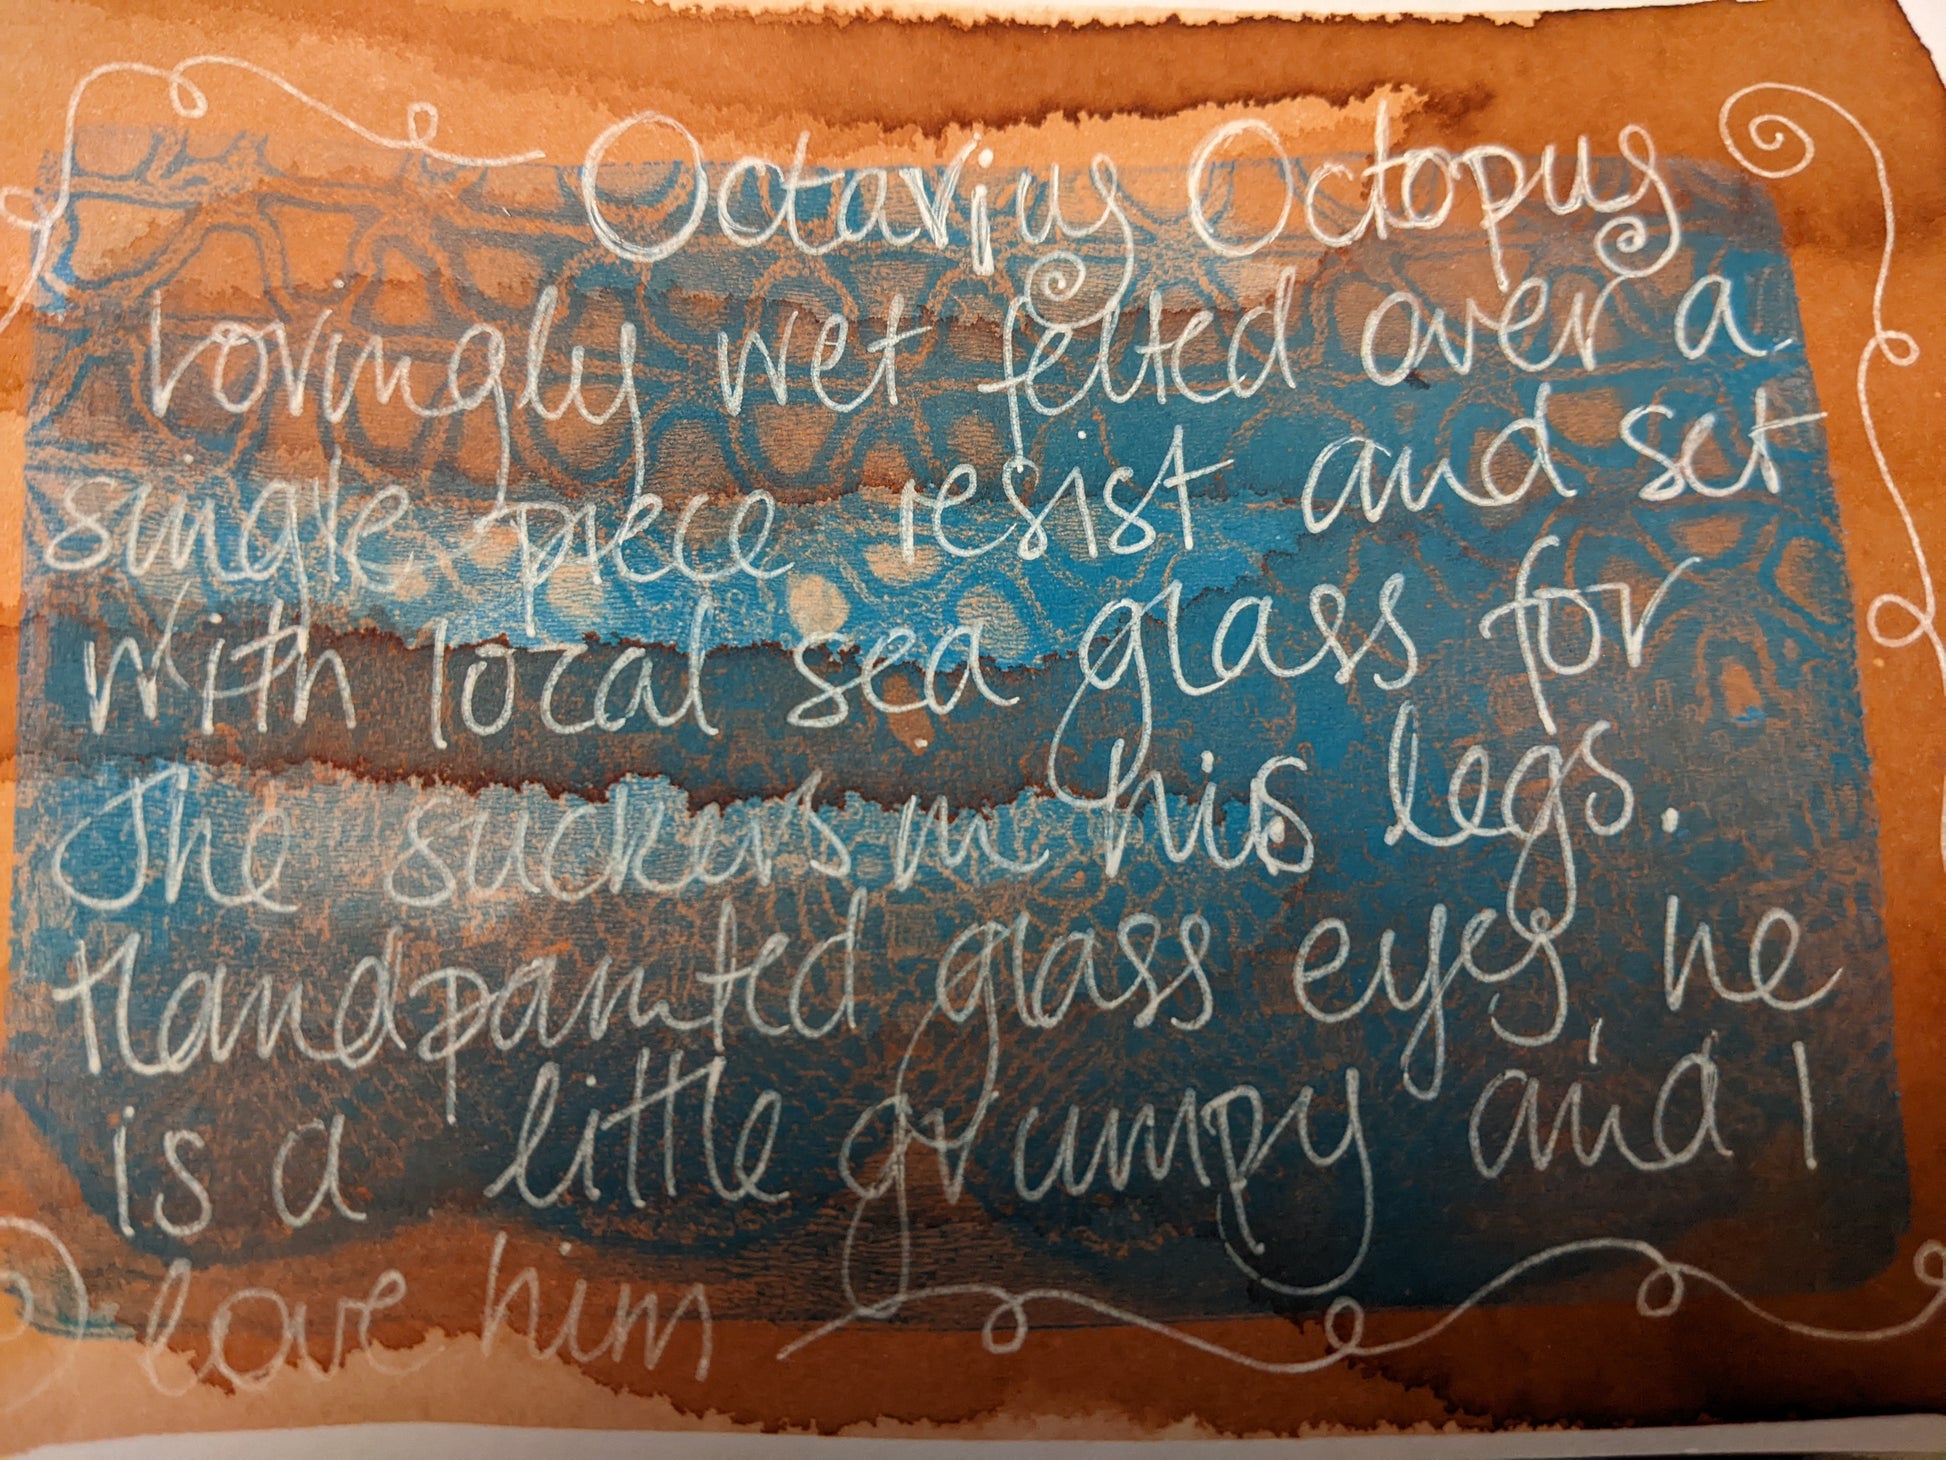 Octavius Octopus
Lovingly wet felted over a
single piece resist and set
with local sea glass for
The suckers in his legs.
Handpainted glass eyes, he
is a little grumpy and I
love him